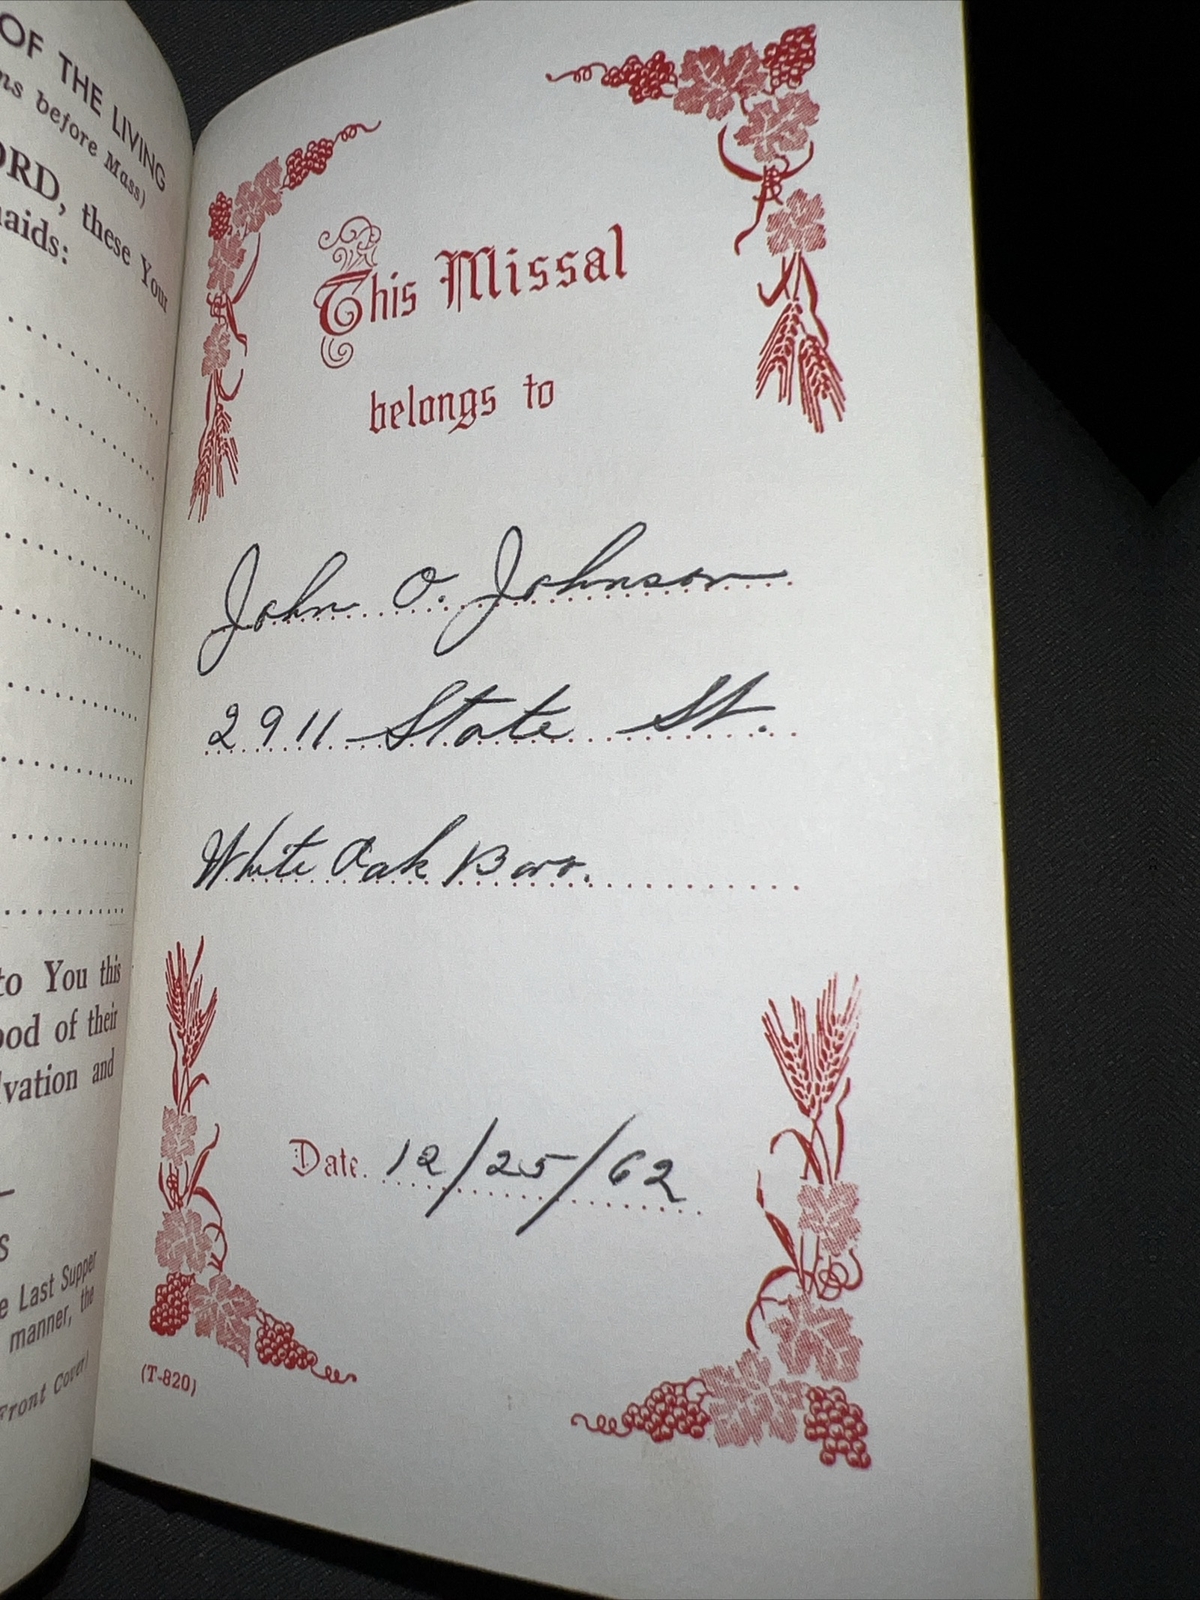 OF THE LIVING
before Mass)
these Your
This Missal
belongs to
John O. Johnson
2911 State St.
White Oak Boro.
Date 12/25/62
(T-820)
to You this
of their
and
Last Supper
manner, the
Front Cover)